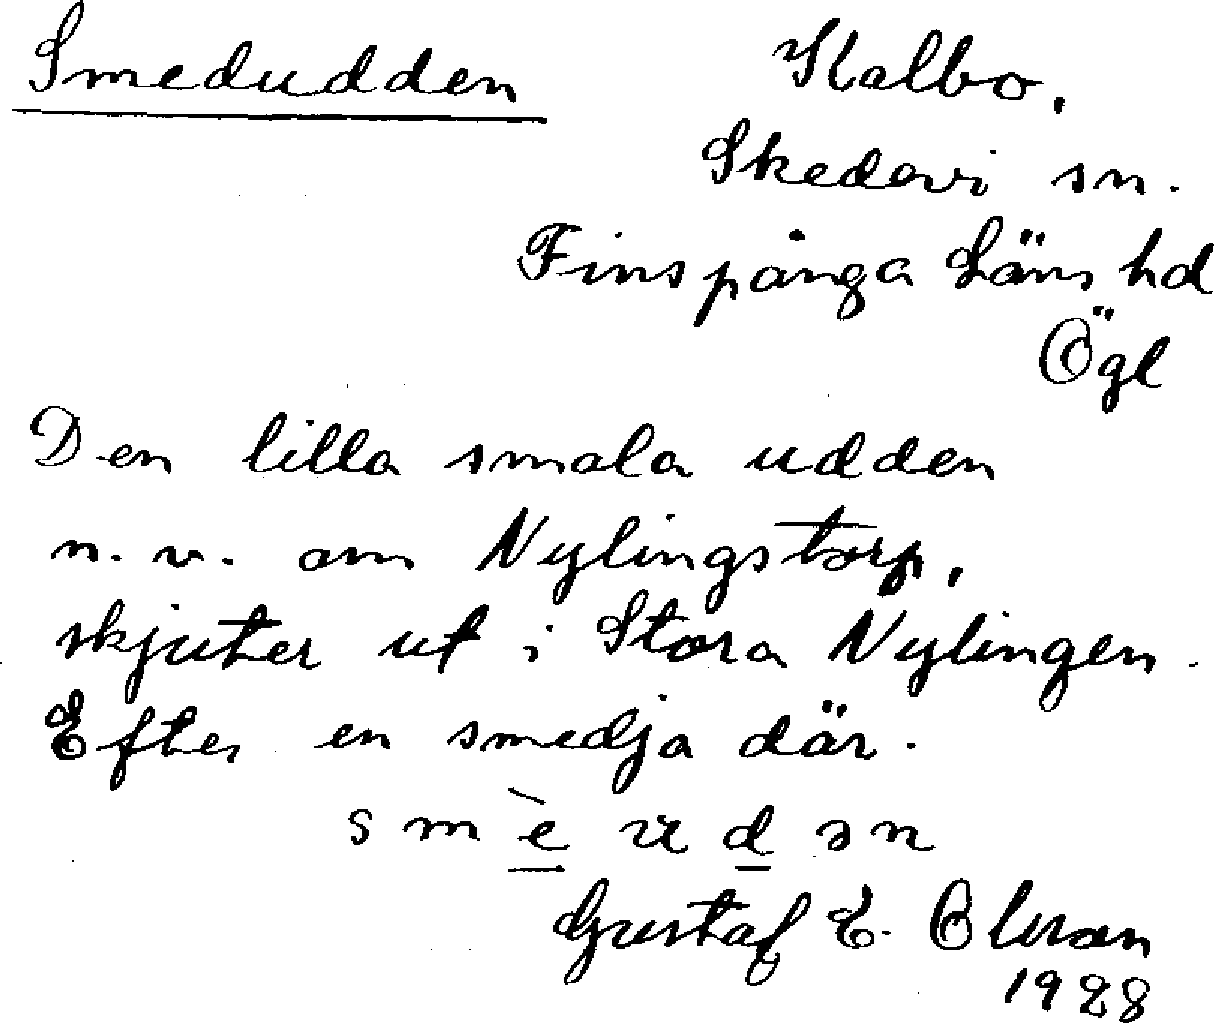 Smedudden
Kalbo,
Skedevi sn.
Finspånga Läns hd
Ögl
Den lilla smala udden
n.v. om Nylingstorp,
skjuter ut i Stora Nylingen.
Efter en smedja där.
smèudən
Gustaf E. Olsson
1928